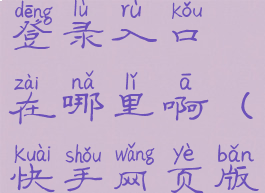 dēng lù rù kǒu
登录入口
zài nǎ lǐ ā
在哪里啊（
kuài shǒu wǎng yè bǎn
快手网页版